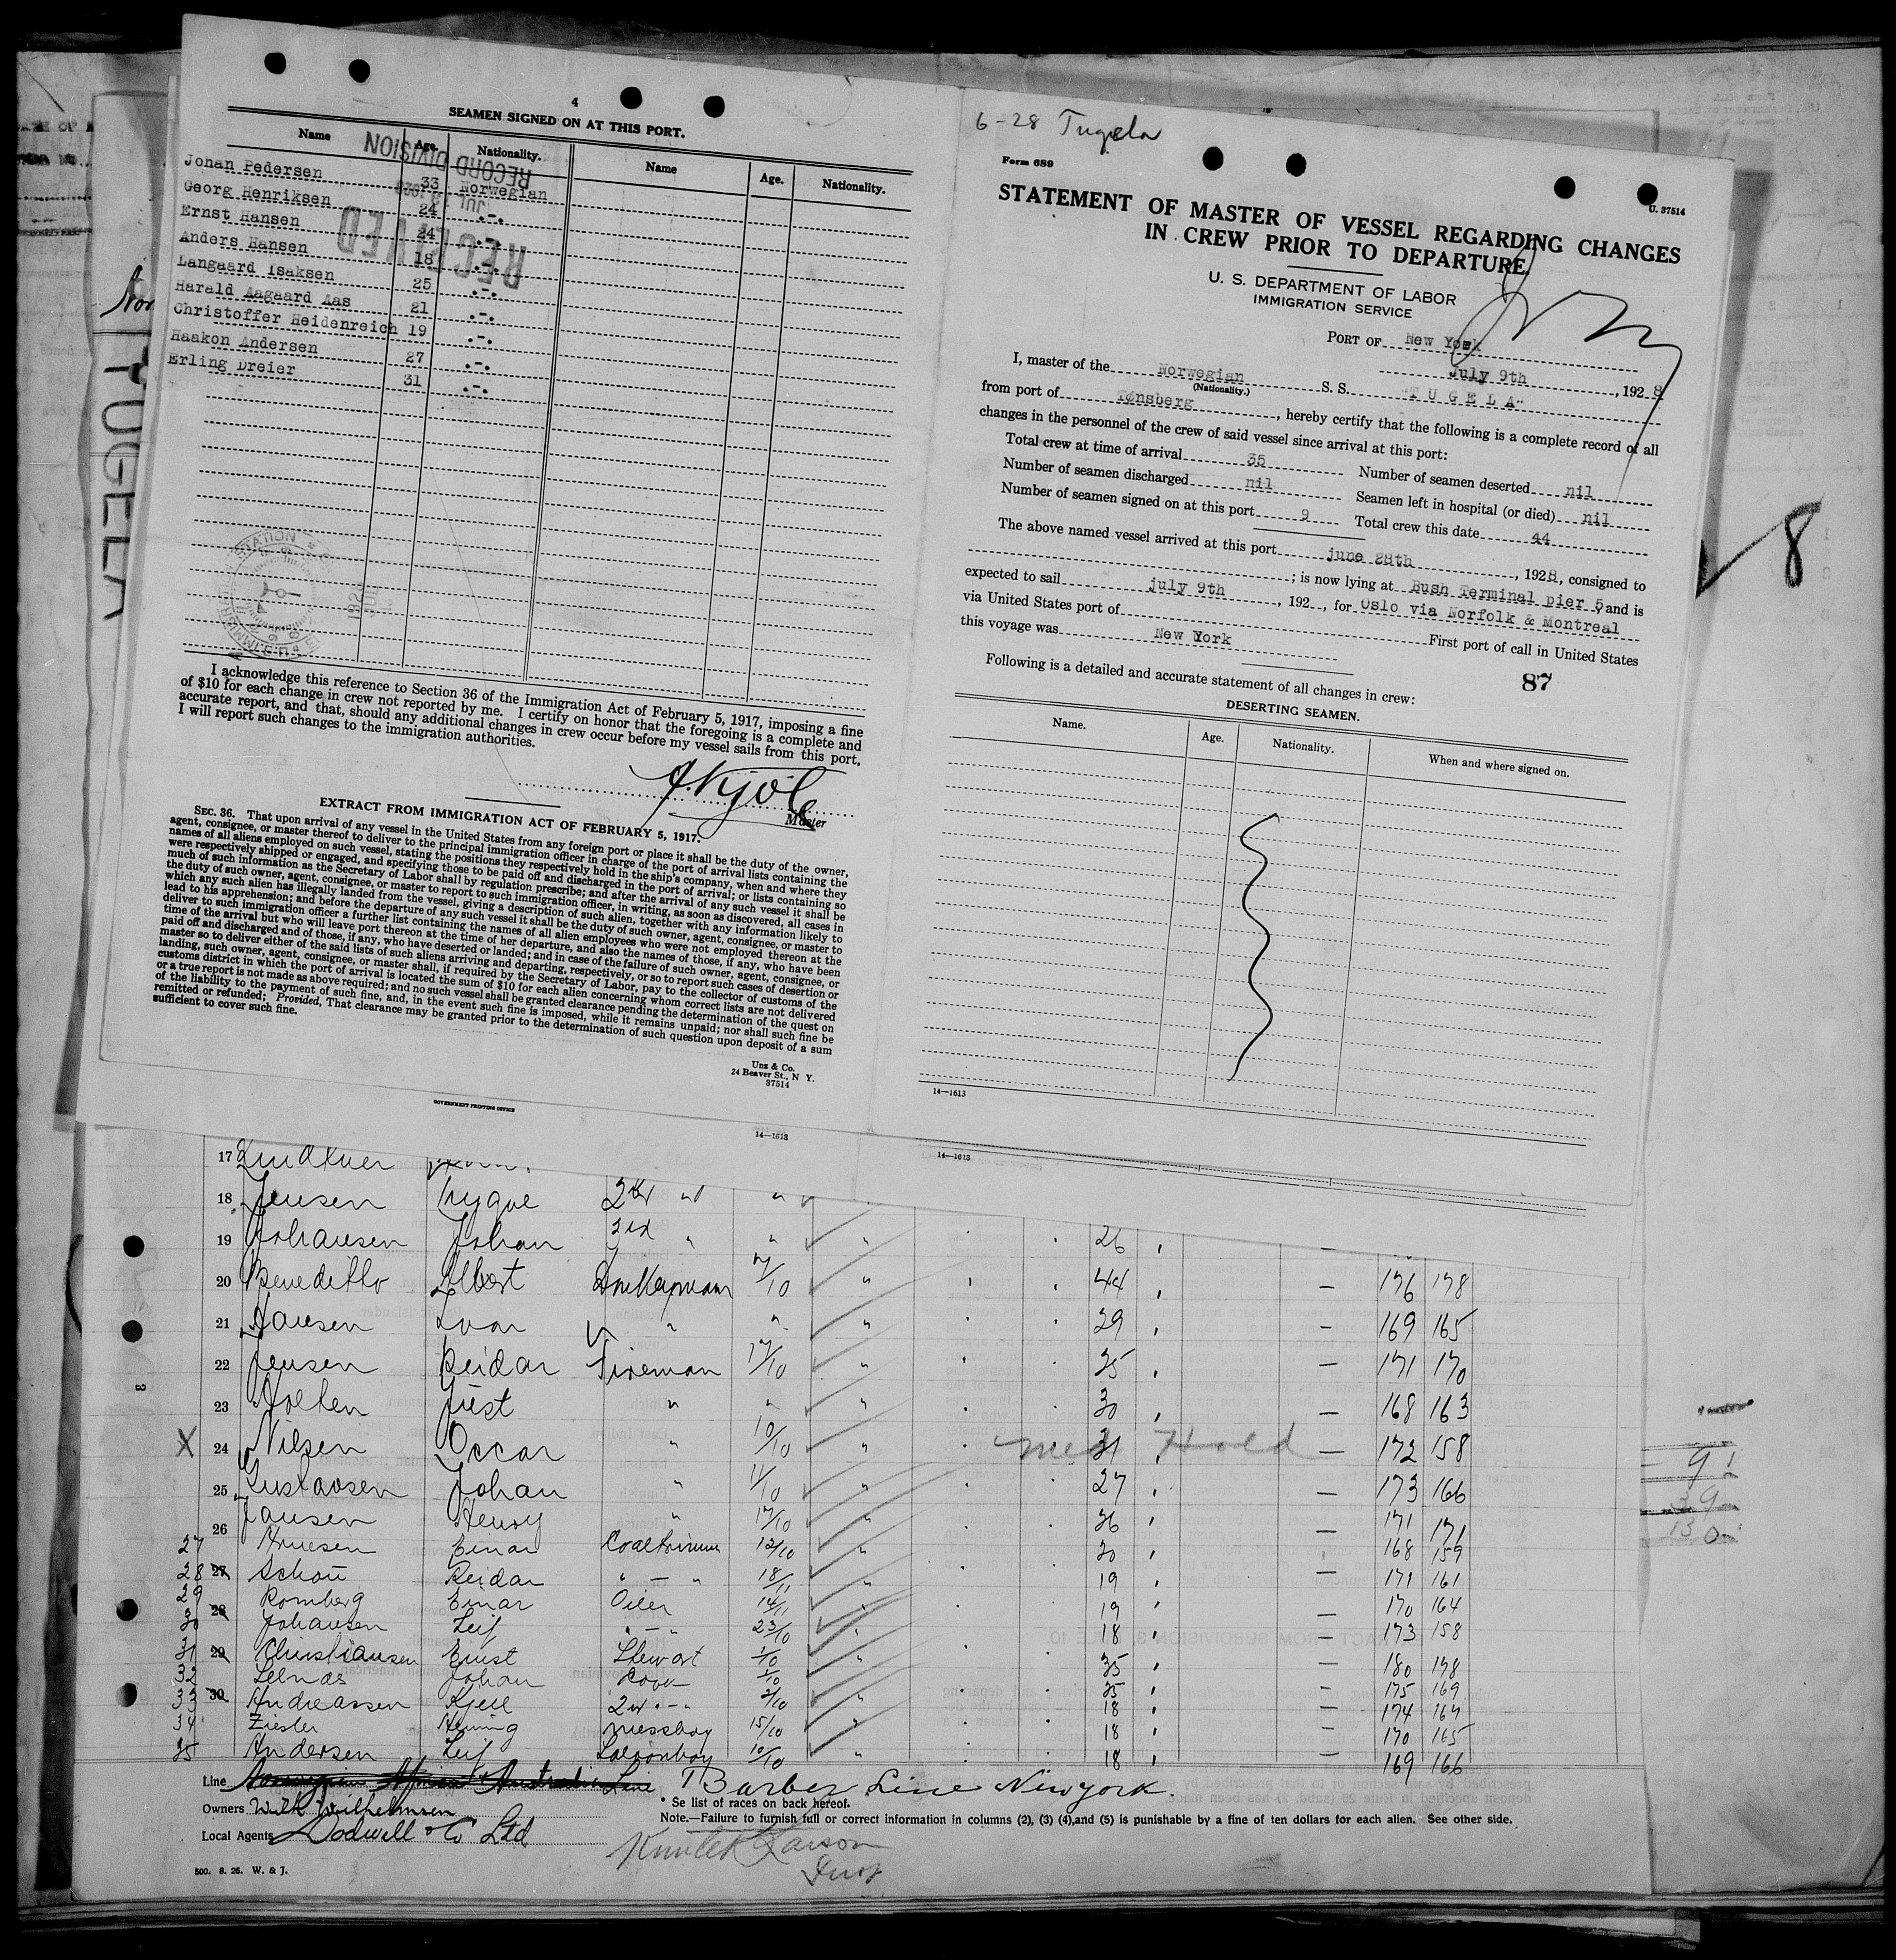 4
SEAMEN SIGNED ON AT THIS PORT.
Name Age. Nationality. Name Age. Nationality.
Johan Pedersen 33 Norwegian
Georg Henriksen 24 -.-.
Ernst Hansen 24 -.-.
Anders Hansen 18 -.-.
Langaard Isaksen 25 -.-.
Harald Aagaard Aas 21 -.-.
Christoffer Heidenreich 19 -.-.
Haakon Andersen 27 -.-.
Erling Dreier 31 -.-.
RECEIVED
RECORD DIVISION
I acknowledge this reference to Section 36 of the Immigration Act of February 5, 1917, imposing a fine
of $10 for each change in crew not reported by me. I certify on honor that the foregoing is a complete and
accurate report, and that, should any additional changes in crew occur before my vessel sails from this port,
I will report such changes to the immigration authorities.
Master
EXTRACT FROM IMMIGRATION ACT OF FEBRUARY 5, 1917.
SEC. 36. That upon arrival of any vessel in the United States from any foreign port or place it shall be the duty of the owner,
agent, consignee, or master thereof to deliver to the principal immigration officer in charge of the port of arrival lists containing the
names of all aliens employed on such vessel, stating the positions they respectively hold in the ship's company, when and where they
were respectively shipped or engaged, and specifying those to be paid off and discharged in the port of arrival; or lists containing so
much of such information as the Secretary of Labor shall by regulation prescribe; and after the arrival of any such vessel it shall be
the duty of such owner, agent, consignee, or master to report to such immigration officer, in writing, as soon as discovered, all cases in
which any such alien has illegally landed from the vessel, giving a description of such alien, together with any information likely to
lead to his apprehension; and before the departure of any such vessel it shall be the duty of such owner, agent, consignee, or master to
deliver to such immigration officer a further list containing the names of all alien employees who were not employed thereon at the
time of the arrival but who will leave port thereon at the time of her departure, and also the names of those, if any, who have been
paid off and discharged and of those, if any, who have deserted or landed; and in case of the failure of such owner, agent, consignee, or
master so to deliver either of the said lists of such aliens arriving and departing, respectively, or so to report such cases of desertion or
landing, such owner, agent, consignee, or master shall, if required by the Secretary of Labor, pay to the collector of customs of the
customs district in which the port of arrival is located the sum of $10 for each alien concerning whom correct lists are not delivered
or a true report is not made as above required; and no such vessel shall be granted clearance pending the determination of the quest on
of the liability to the payment of such fine, and, in the event such fine is imposed, while it remains unpaid; nor shall such fine be
remitted or refunded; Provided, That clearance may be granted prior to the determination of such question upon deposit of a sum
sufficient to cover such fine.
Unz & Co.
24 Beaver St., N Y.
37514
GOVERNMENT PRINTING OFFICE
14—1613
6-28 Tugela
Form 689
U. 37514
STATEMENT OF MASTER OF VESSEL REGARDING CHANGES
IN CREW PRIOR TO DEPARTURE.
U. S. DEPARTMENT OF LABOR
IMMIGRATION SERVICE
PORT OF New York
July 9th, 1928
I, master of the Norwegian S. S. "TUGELA"
(Nationality.)
from port of Tønsberg, hereby certify that the following is a complete record of all
changes in the personnel of the crew of said vessel since arrival at this port:
Total crew at time of arrival 35 Number of seamen deserted nil
Number of seamen discharged nil Seamen left in hospital (or died) nil
Number of seamen signed on at this port 9 Total crew this date 44
The above named vessel arrived at this port june 28th, 1928, consigned to
; is now lying at Bush Terminal pier 5, and is
expected to sail july 9th, 192 , for Oslo via Norfolk & Montreal
via United States port of First port of call in United States
this voyage was New York
87
Following is a detailed and accurate statement of all changes in crew:
DESERTING SEAMEN.
Name. Age. Nationality. When and where signed on.
14—1613
14—1613
8
TUGELA
17 Lindtner
18 Jensen Trygve 2nd "
19 Johansen Johan 3rd " 26
20 Beneditto Albert Donkeyman 44 — 176 178
21 Hansen Ivar " 29 — 169 165
22 Jensen Reidar Fireman 17/10 25 — 171 170
23 Holten Just " 30 — 168 163
X 24 Nilsen Oscar " 10/10 31 med Hold — 172 158
25 Gustavsen Johan " 11/10 27 — 173 166
26 Jansen Henry " 17/10 26 — 171 171
27 Arnesen Einar Coaltrimmer 12/10 20 168 159
28 27 Schou Reidar " — " 18/11 19 — 171 161
29 Romberg Einar Oiler 14/11 19 170 164
30 28 Johansen Leif " — " 23/10 18 — 173 158
31 29 Christiansen Ernst Stewart 1/10 35 — 180 178
32 Selnas Johan Cook 1/10 25 — 175 169
33 30 Andreassen Kjell 2nd -"- 2/10 18 — 174 167
34 Ziesler Henning Messboy 15/10 18 — 170 165
35 Andersen Leif Saloonboy 10/10 18 — 169 166
Line Norwegian African & Australian Line Barber Line New York.
Owners Wilh Wilhelmsen
Local Agents Dodwell & Co Ltd
* Se list of races on back hereof.
Note.—Failure to furnish full or correct information in columns (2), (3) (4),and (5) is punishable by a fine of ten dollars for each alien. See other side.
500. 8. 26. W. & J.